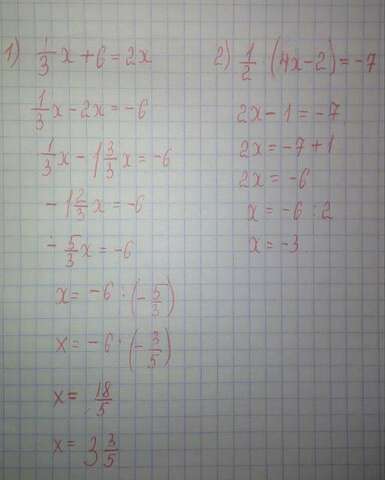 1) 1/3 x + 6 = 2x
1/3 x - 2x = -6
1/3 x - 1 3/3 x = -6
- 1 2/3 x = -6
- 5/3 x = -6
x = -6 : (- 5/3)
x = -6 · (- 3/5)
x = 18/5
x = 3 3/5
2) 1/2 (4x - 2) = -7
2x - 1 = -7
2x = -7 + 1
2x = -6
x = -6 : 2
x = -3